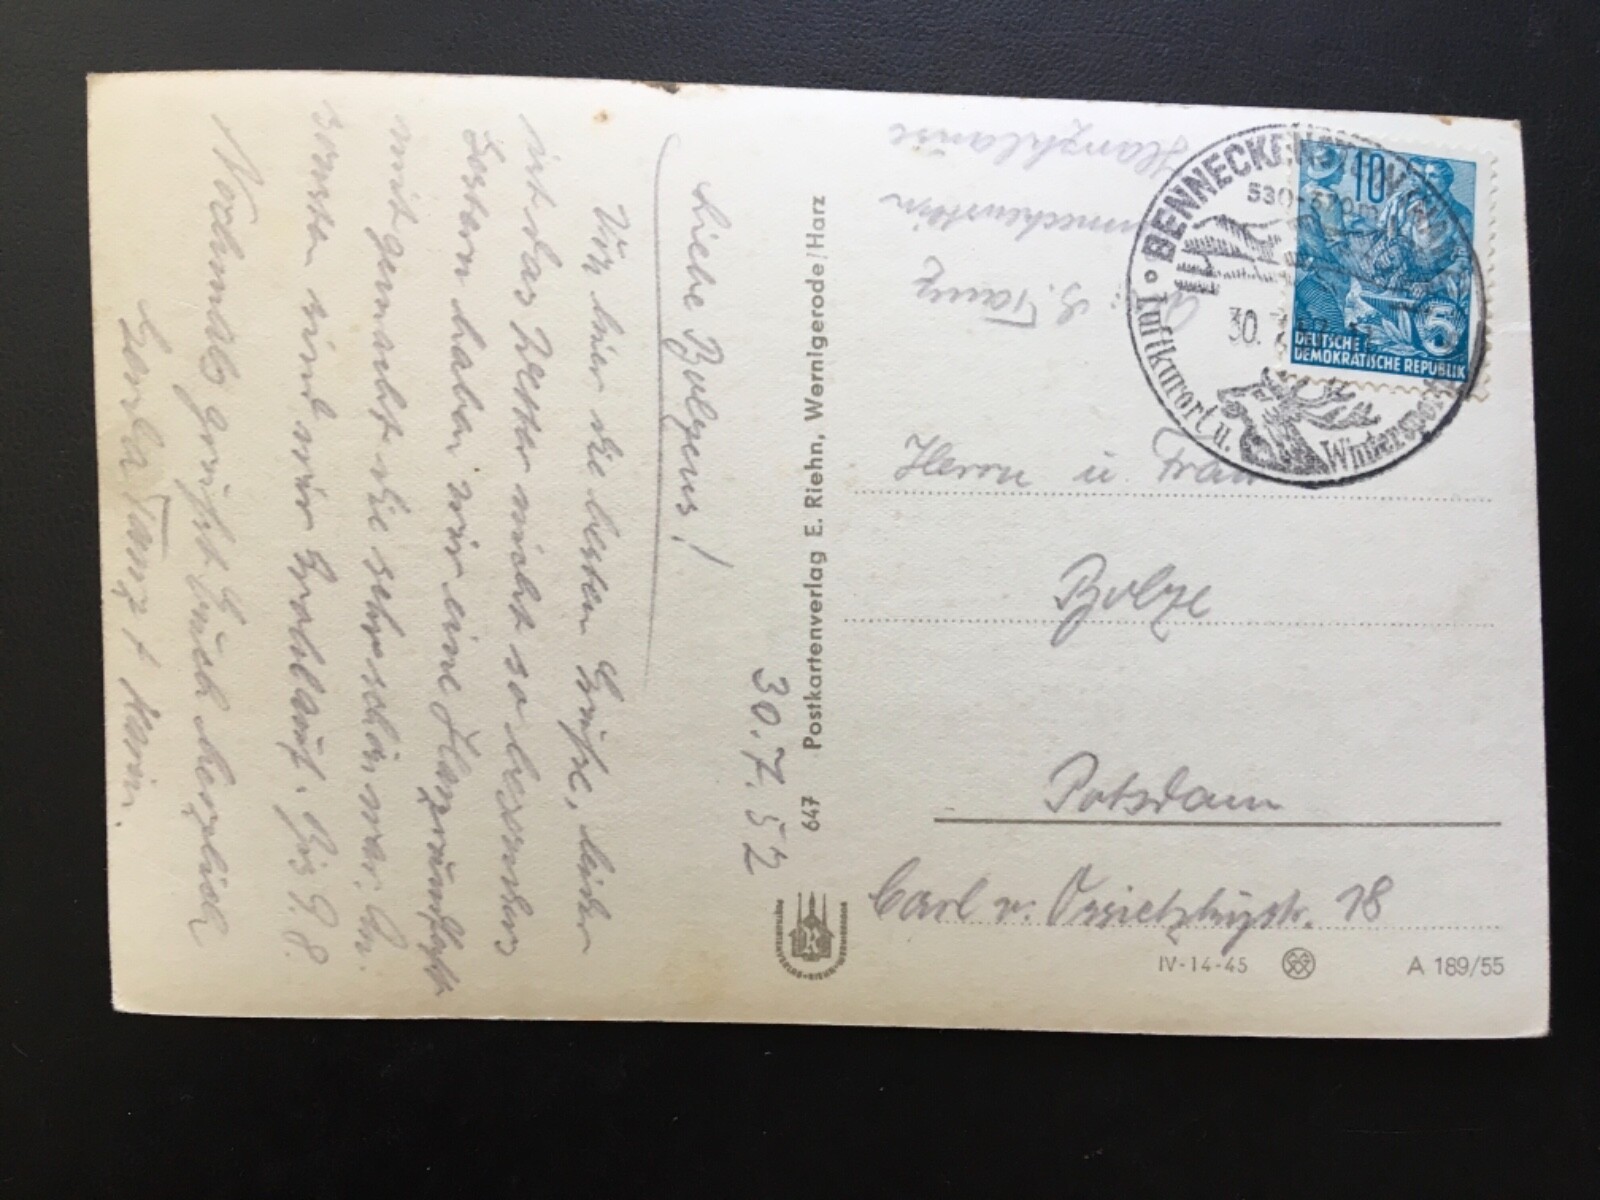 30.7.57
Liebe Bolzens!
Von hier die besten Grüße, leider
ist das Wetter nicht so besonders
Gestern haben wir eine Harzrundfahrt
mitgemacht die sehr schön war. An-
sonsten sind wir . Bis 9.8.
Nochmals grüßt Euch herzlich
Gerda Tanz + Karin.
647 Postkartenverlag E. Riehn, Wernigerode/Harz
POSTKARTENVERLAG • RIEHN • WERNIGERODE
G. Tanz
Harzklause
BENNECKENSTEIN
530-570 m
30.7.
Luftkurort u. Wintersport
10
5
DEUTSCHE
DEMOKRATISCHE REPUBLIK
Herrn u Frau
Bolze
Potsdam
Carl v. Ossietzkystr. 18
IV-14-45
A 189/55